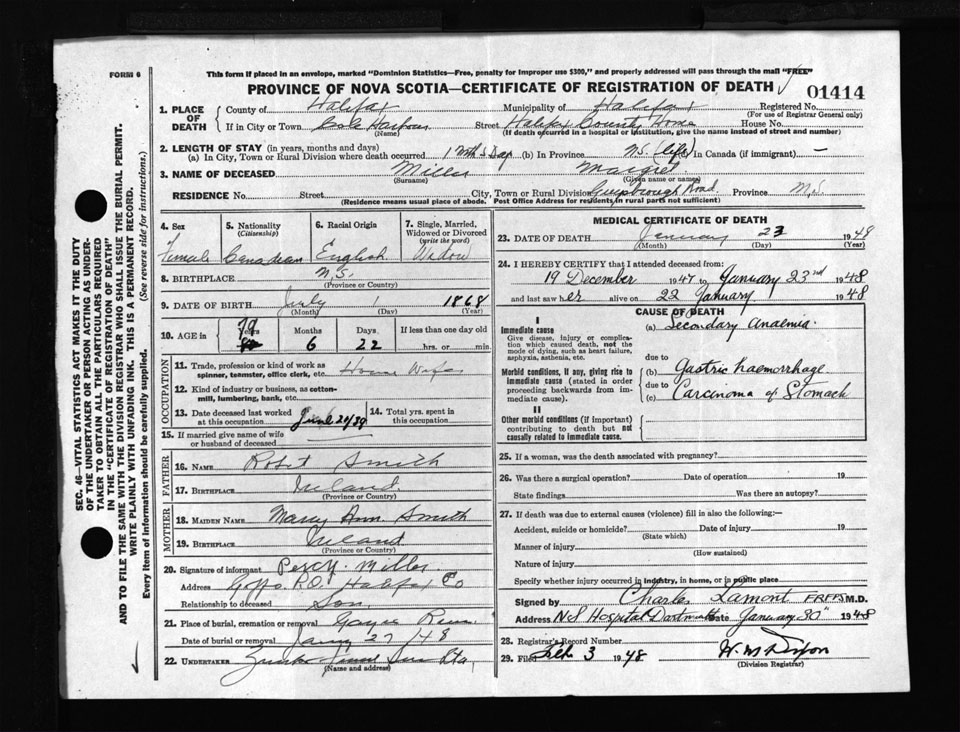 FORM 6
This form if placed in an envelope, marked "Dominion Statistics—Free, penalty for improper use $300," and properly addressed will pass through the mail "FREE"
PROVINCE OF NOVA SCOTIA—CERTIFICATE OF REGISTRATION OF DEATH 01414
1. PLACE OF DEATH County of Halifax Municipality of Halifax Registered No.
(For use of Registrar General only)
If in City or Town Cole Harbour Street Halifax County Home House No.
(Name) (If death occurred in a hospital or institution, give the name instead of street and number)
2. LENGTH OF STAY (in years, months and days)
(a) In City, Town or Rural Division where death occurred 1 Mth 5 Day (b) In Province N.S. (life) In Canada (if immigrant) —
3. NAME OF DECEASED Miller Margret
(Surname) (Given name or names)
RESIDENCE No. Street City, Town or Rural Division Guysborough Road. Province N.S.
(Residence means usual place of abode. Post Office Address for residents in rural parts not sufficient)
4. Sex 5. Nationality (Citizenship) 6. Racial Origin 7. Single, Married, Widowed or Divorced (write the word)
Female Canadian English Widow
8. BIRTHPLACE N.S.
(Province or Country)
9. DATE OF BIRTH July 1 1868
(Month) (Day) (Year)
10. AGE in 79 Years Months Days If less than one day old
6 22 hrs. or min.
OCCUPATION
11. Trade, profession or kind of work as spinner, teamster, office clerk, etc. House Wife
12. Kind of industry or business, as cotton-mill, lumbering, bank, etc.
13. Date deceased last worked at this occupation June 20/39 14. Total yrs. spent in this occupation
15. If married give name of wife or husband of deceased
FATHER
16. NAME Robt Smith
17. BIRTHPLACE Ireland.
(Province or Country)
MOTHER
18. MAIDEN NAME Mary Ann. Smith
19. BIRTHPLACE Ireland
(Province or Country)
20. Signature of informant Percy Miller
Address Goffs P.O. Halifax Co
Relationship to deceased Son.
21. Place of burial, cremation or removal
Date of burial or removal Jany 27/48
22. UNDERTAKER
(Name and address)
MEDICAL CERTIFICATE OF DEATH
23. DATE OF DEATH January 23 1948
(Month) (Day) (Year)
24. I HEREBY CERTIFY that I attended deceased from:
19 December 1947 to January 23nd 1948
and last saw her alive on 22 January 1948
CAUSE OF DEATH
I
Immediate cause
Give disease, injury or complication which caused death, not the mode of dying, such as heart failure, asphyxia, asthenia, etc.
(a) Secondary Anaemia.
due to
Morbid conditions, if any, giving rise to immediate cause (stated in order proceeding backwards from immediate cause).
(b) Gastric haemorrhage.
due to
(c) Carcinoma of Stomach
II
Other morbid conditions (if important) contributing to death but not causally related to immediate cause.
25. If a woman, was the death associated with pregnancy?
26. Was there a surgical operation? Date of operation 19
State findings Was there an autopsy?
27. If death was due to external causes (violence) fill in also the following:—
Accident, suicide or homicide? Date of injury 19
(State which)
Manner of injury
(How sustained)
Nature of injury
Specify whether injury occurred in industry, in home, or in public place
Signed by Charles Lamont M.D.
Address N.S Hospital Dartmouth Date January 30th 1948
28. Registrar's Record Number
29. Filed Feb 3 1948 W. M Dixon
(Division Registrar)
SEC. 46—VITAL STATISTICS ACT MAKES IT THE DUTY
OF THE UNDERTAKER OR PERSON ACTING AS UNDERTAKER TO OBTAIN ALL THE PARTICULARS REQUIRED
IN THE "CERTIFICATE OF REGISTRATION OF DEATH"
AND TO FILE THE SAME WITH THE DIVISION REGISTRAR WHO SHALL ISSUE THE BURIAL PERMIT.
WRITE PLAINLY WITH UNFADING INK. THIS IS A PERMANENT RECORD.
Every item of Information should be carefully supplied. (See reverse side for instructions.)